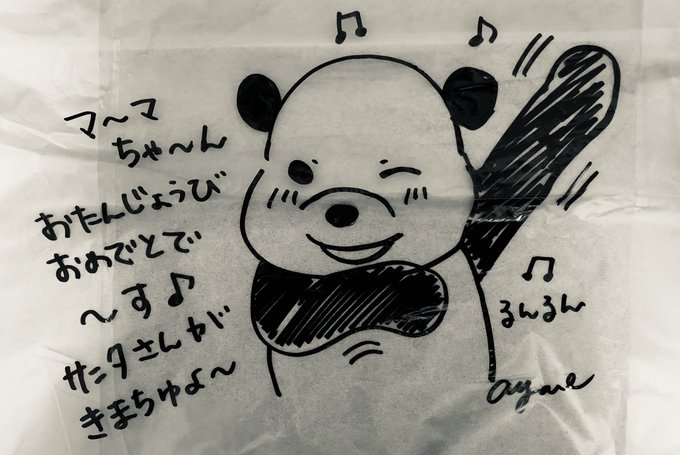 マ〜マ
ちゃ〜ん
おたんじょうび
おめでとで
〜す♪
サンタさんが
きまちゅよ〜
るんるん
ayane